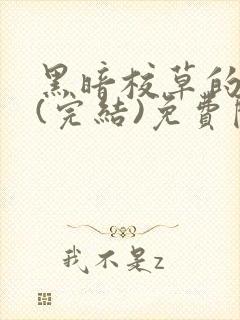 黑暗校草的
(完結)免費
我不是z